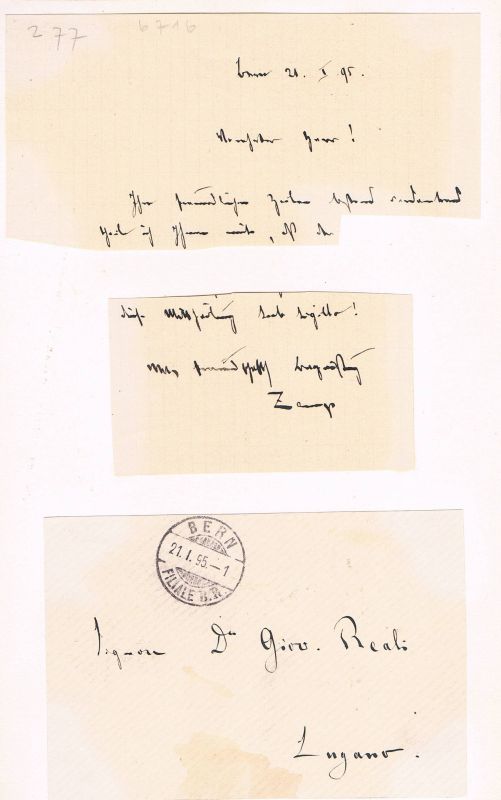 277
6716
Bern 21. I 95.
Verehrter Herr!
Ihre freundlichen Zeilen bestens verdankend
theile ich Ihnen mit, daß
diese Mittheilung sub sigillo!
Mit freundschaftl Begrüßung
Zemp
BERN
21.I.95.-1
FILIALE B.R.
Signore Dr Giov. Reali
Lugano.